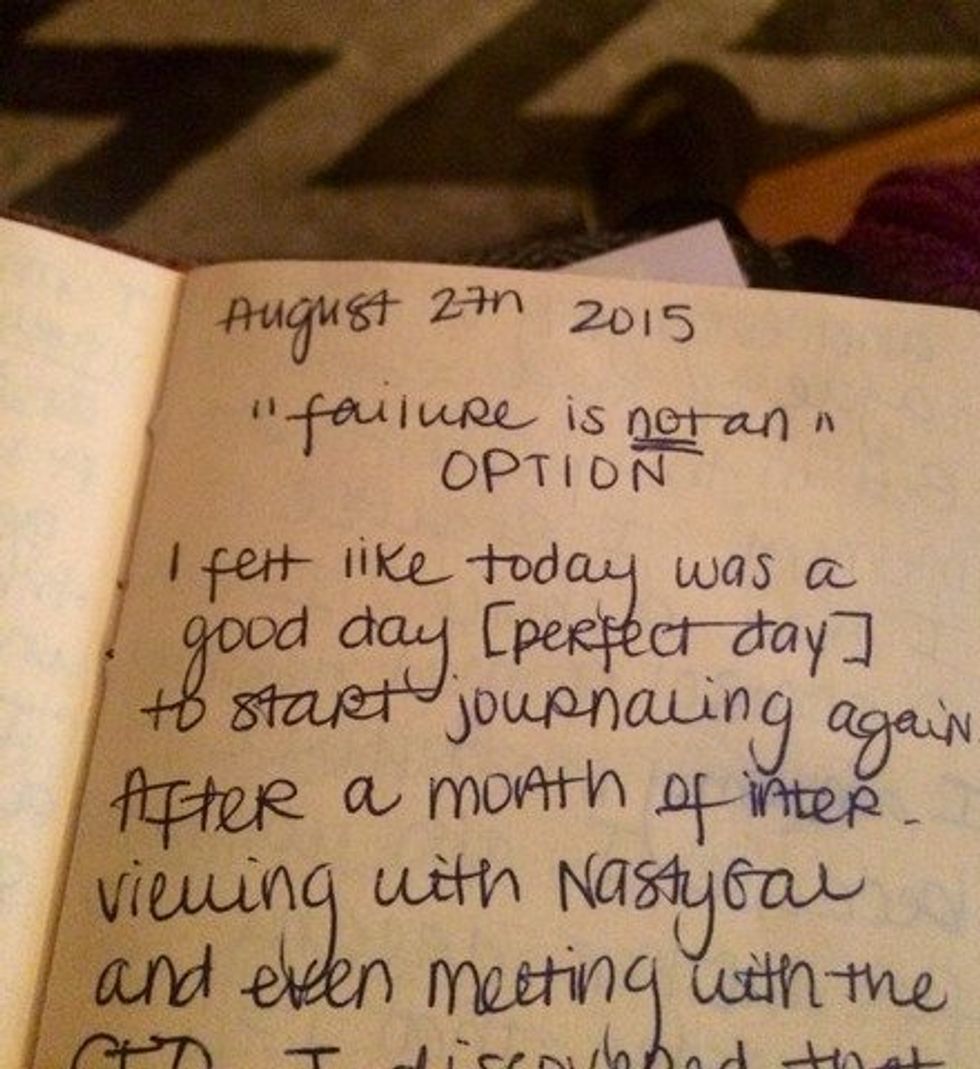 August 27th 2015
"failure is not an"
OPTION
I felt like today was a
good day [perfect day]
to start journaling again.
After a month of inter-
viewing with NastyGal
and even meeting with the
I discovered that